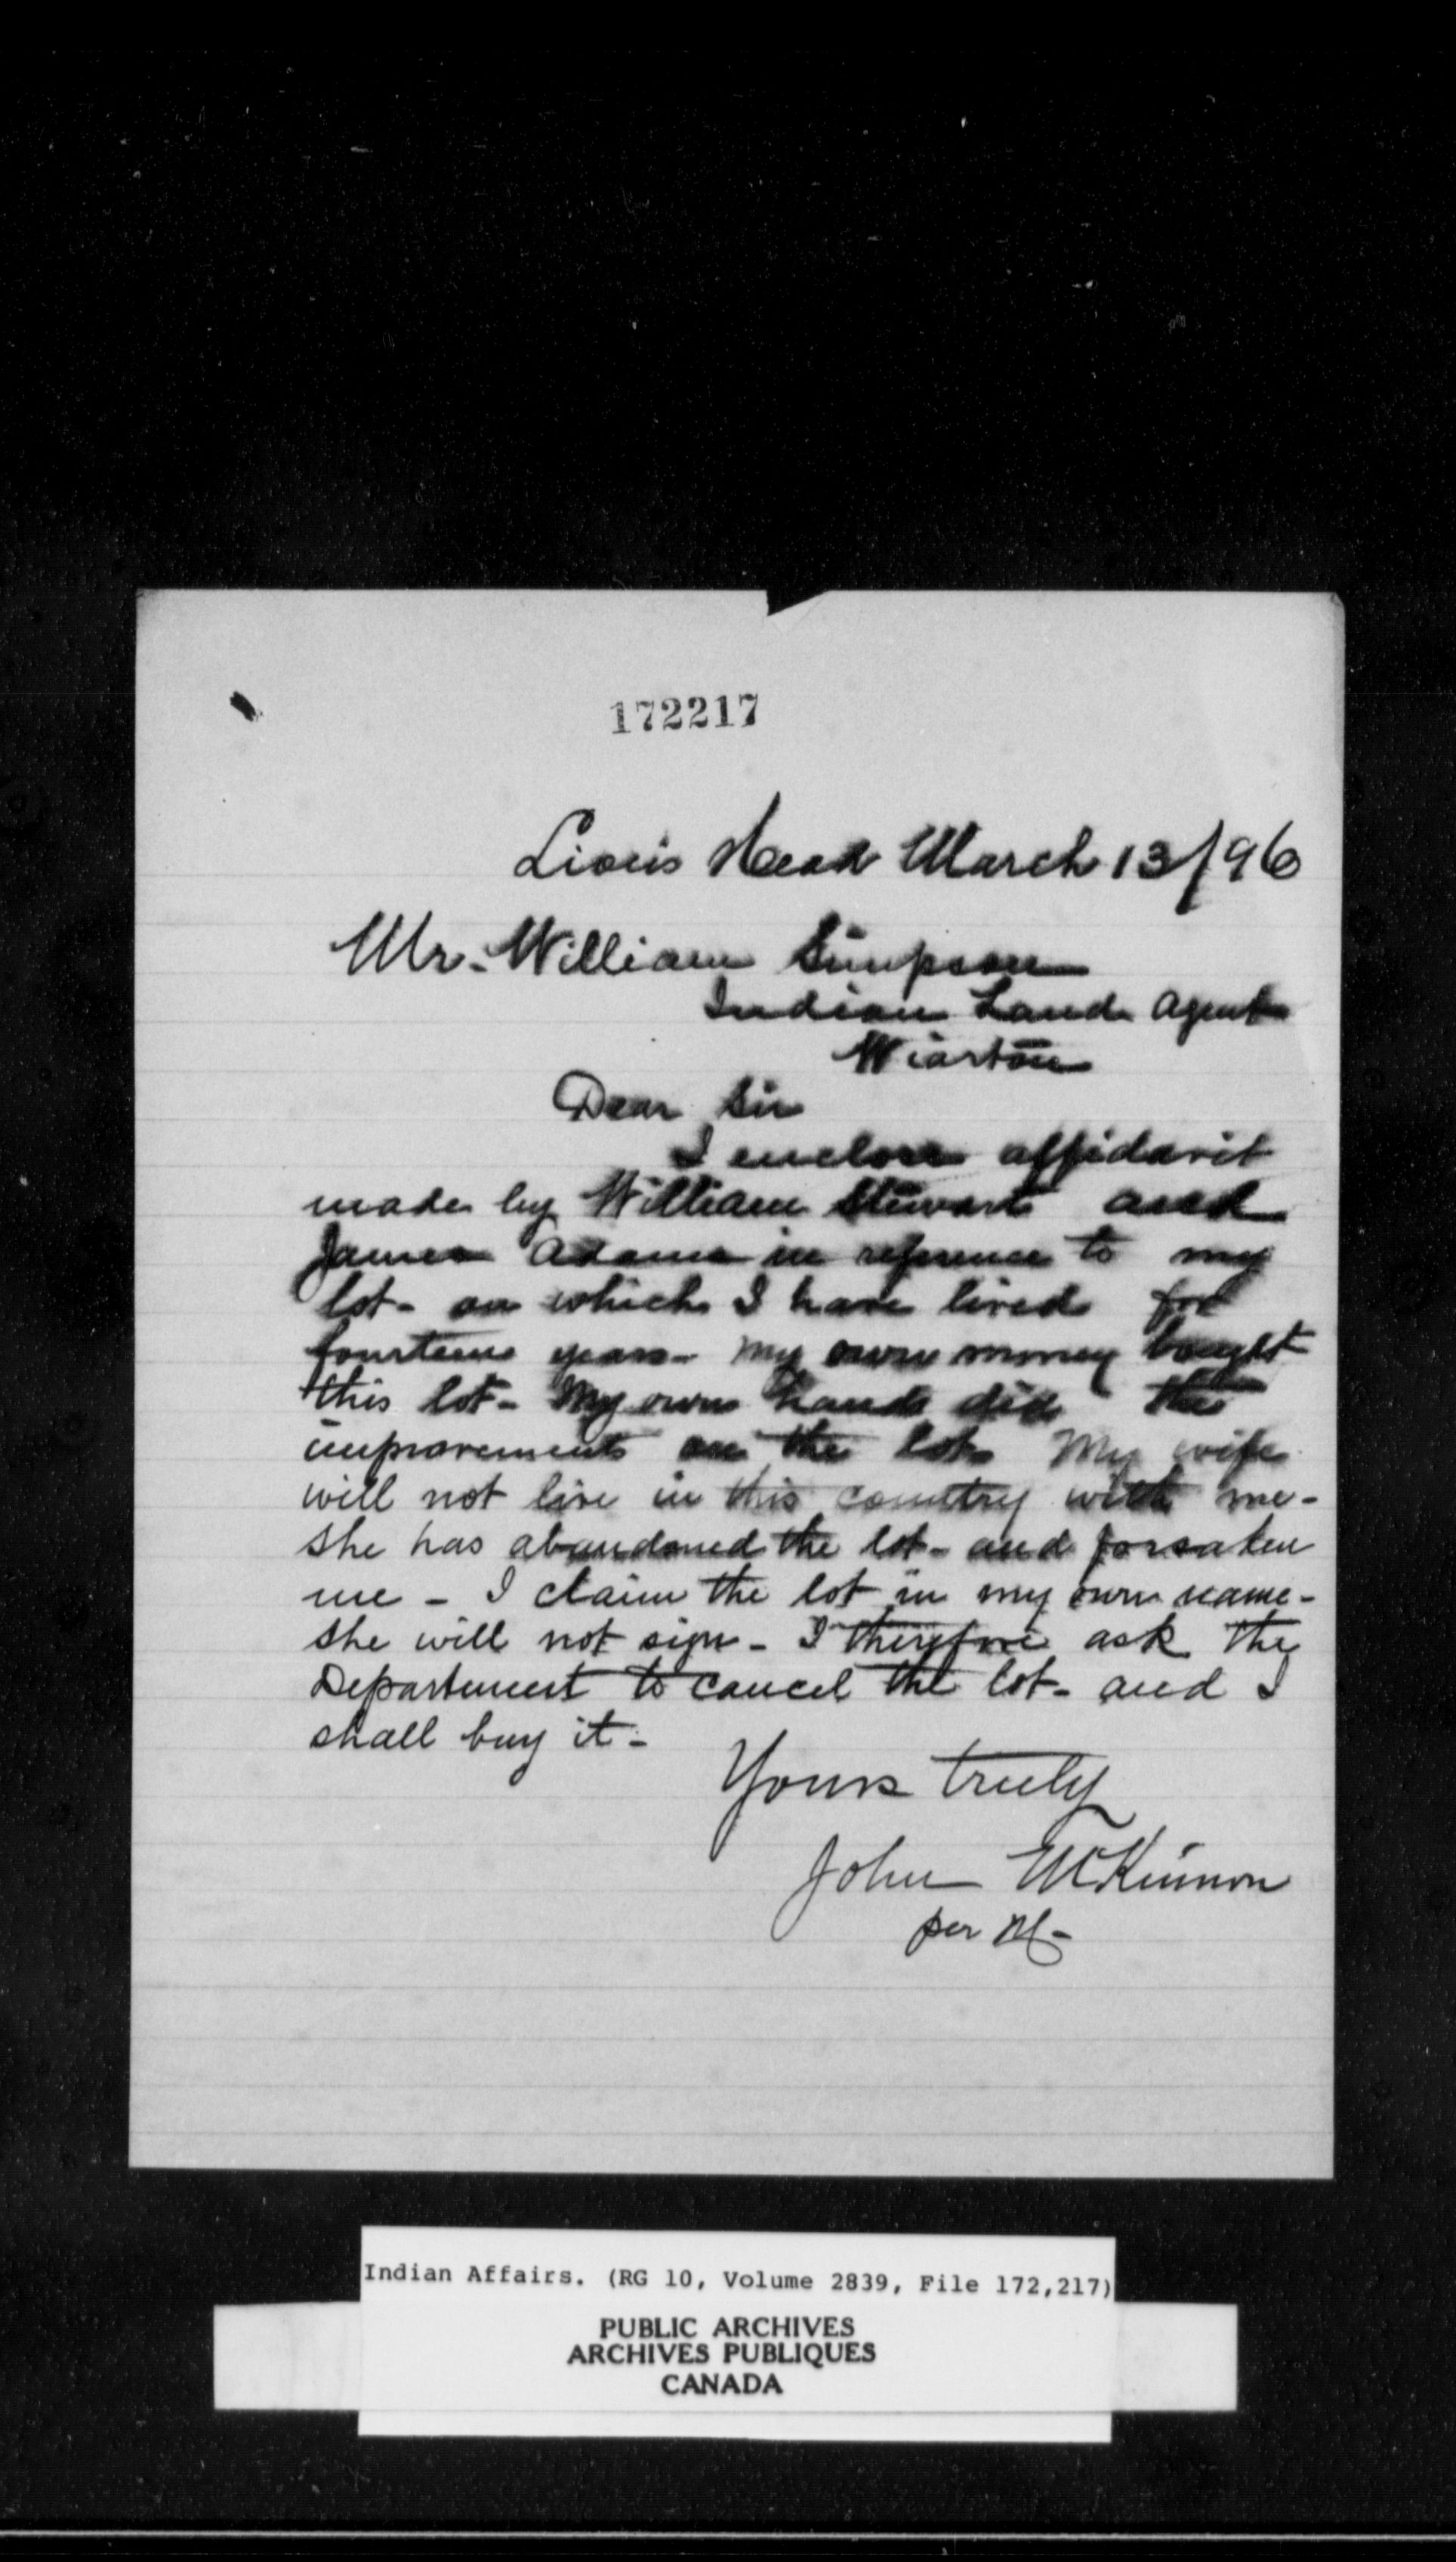 172217
Lion's Head March 13/96
Mr. William Simpson
Indian Land Agent
Wiarton
Dear Sir
I enclose affidavit
made by William Stewart and
James Adams in reference to my
lot - on which I have lived for
fourteen years - My own money bought
this lot - My own hands did the
improvements on the lot. My wife
will not live in this country with me -
She has abandoned the lot - and forsaken
me - I claim the lot in my own name -
She will not sign - I therefore ask the
Department to cancel the lot - and I
shall buy it -
Yours truly
John McKinnon
per M -
Indian Affairs. (RG 10, Volume 2839, File 172,217)
PUBLIC ARCHIVES
ARCHIVES PUBLIQUES
CANADA